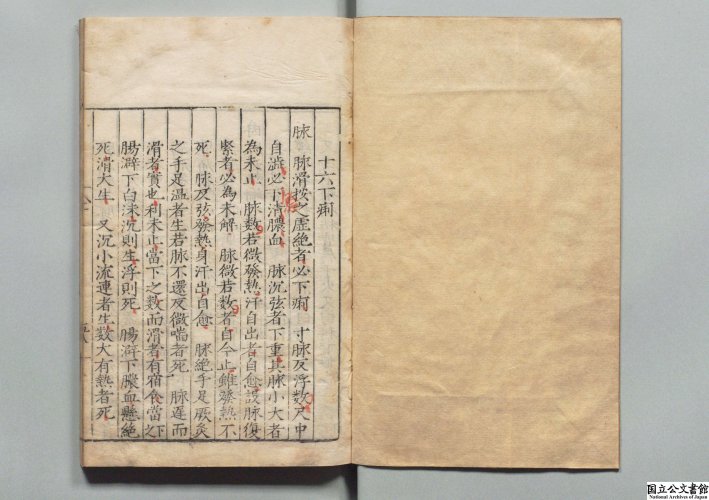 十六下痢
脉　脉滑按之虛絶者必下痢　寸脉反浮数尺中
自濇必下清膿血　脉沉弦者下重其脉小大者
為未止　脉数若微發熱汗自出者自愈設脉復
緊者必為未解　脉微若数者自今止雖發熱不
死　脉反弦發熱身汗出自愈　脉絶手足厥灸
之手足温者生若脉不還反微喘者死　脉遲而
滑者實也利未止當下之数而滑者有宿食當下之
腸澼下白沫沉則生浮則死　腸澼下膿血懸絶
死滑大生　又沉小流連者生数大有熱者死
国立公文書館
National Archives of Japan